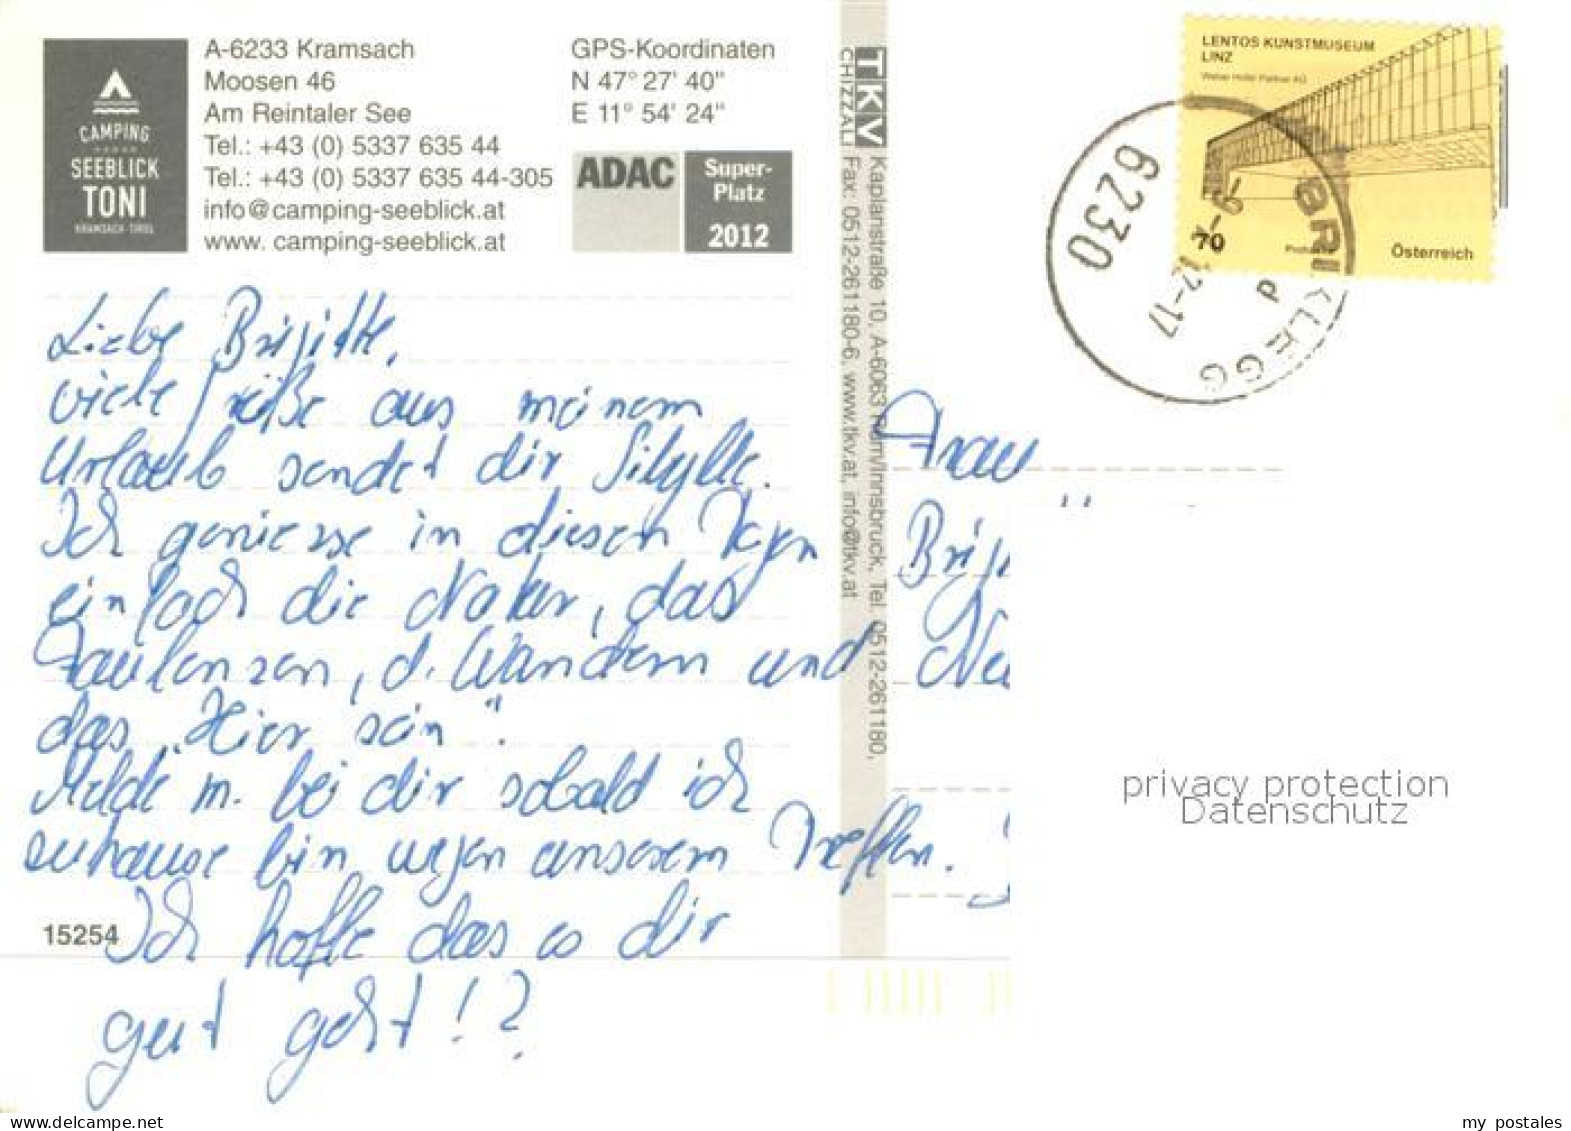 A-6233 Kramsach
Moosen 46
Am Reintaler See
Tel.: +43 (0) 5337 635 44
Tel.: +43 (0) 5337 635 44-305
info@camping-seeblick.at
www. camping-seeblick.at
CAMPING
SEEBLICK
TONI
KRAMSACH · TIROL
GPS-Koordinaten
N 47° 27' 40"
E 11° 54' 24"
ADAC
Super-
Platz
2012
Liebe Brigitte,
viele Grüße aus meinem
Urlaub sendet dir Sibylle.
Ich geniesse in diesen Tagen
einfach die Natur, das
Faulenzen, d. Wandern und
das „Hier sein".
Melde m. bei dir sobald ich
zuhause bin wegen unserem Treffen.
Ich hoffe das es dir
gut geht!?
15254
TKV
CHIZZALI
Kaplanstraße 10, A-6063 Rum/Innsbruck, Tel. 0512-261180,
Fax: 0512-261180-6, www.tkv.at, info@tkv.at
LENTOS KUNSTMUSEUM
LINZ
70
Österreich
6230
BRIXLEGG
d
Frau
Brigi
Ne
privacy protection
Datenschutz
my_postales
delcampe.net